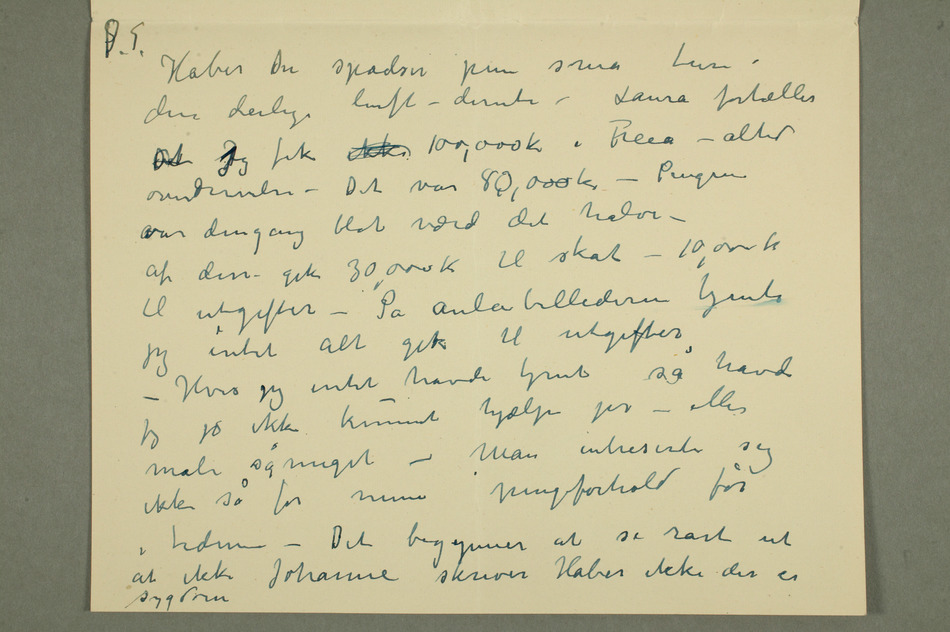 P.S.
Haber Du spadser pene små ture i
den deilige luft – dernede – Laura fortæller
Det Jeg fik ikke 100,000k i Freia – altid
overdrivelse – Det var 80,000k – Pengene
var dengang blot værd det halve –
af dem gik 30,000k til skat – 10,000k
til utgifter – På aulabillederne tjente
jeg intet alt gik til utgifter
– Hvis jeg intet havde tjent så havde
jeg jo ikke kunnet hjælpe jer – eller
male såmeget – Man intresserte sig
ikke så for mine pengeforhold før
i tiderne – Det begynner at se rart ut
at ikke Johanne skriver Haber ikke der er
sygdom